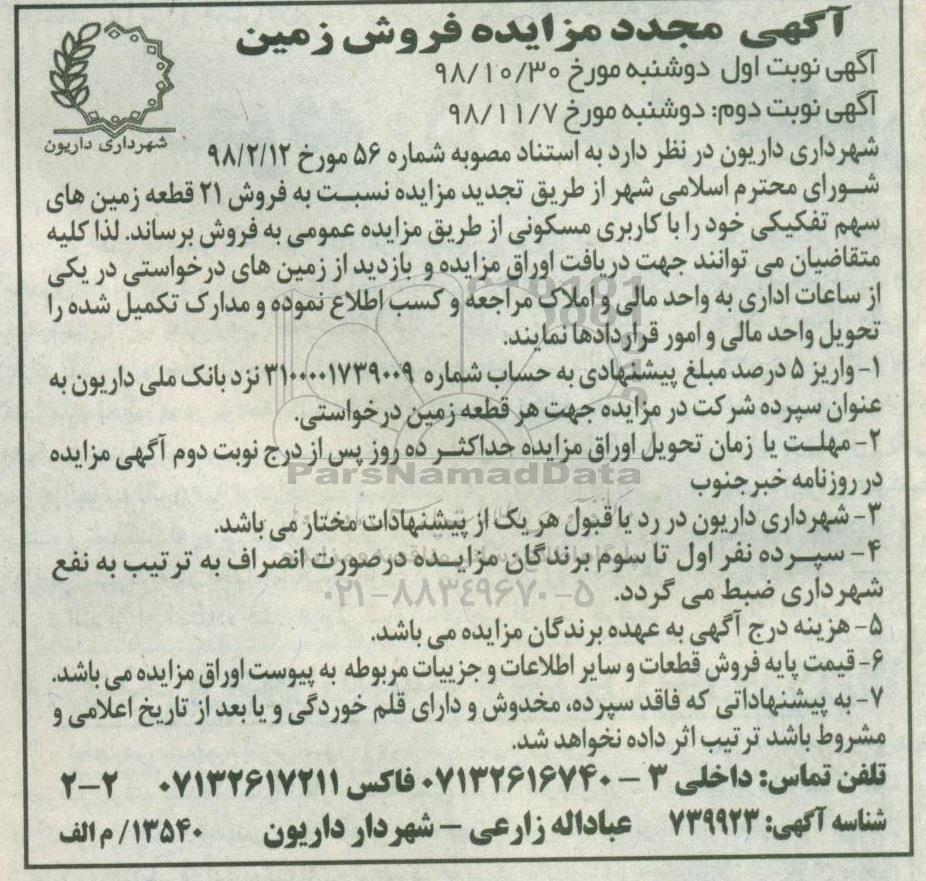 آگهی مجدد مزایده فروش زمین
آگهی نوبت اول دوشنبه مورخ ۹۸/۱۰/۳۰
آگهی نوبت دوم: دوشنبه مورخ ۹۸/۱۱/۷
شهرداری داریون
شهرداری داریون در نظر دارد به استناد مصوبه شماره ۵۶ مورخ ۹۸/۲/۱۲
شورای محترم اسلامی شهر از طریق تجدید مزایده نسبت به فروش ۲۱ قطعه زمین های
سهم تفکیکی خود را با کاربری مسکونی از طریق مزایده عمومی به فروش برساند. لذا کلیه
متقاضیان می توانند جهت دریافت اوراق مزایده و بازدید از زمین های درخواستی در یکی
از ساعات اداری به واحد مالی و املاک مراجعه و کسب اطلاع نموده و مدارک تکمیل شده را
تحویل واحد مالی و امور قراردادها نمایند.
۱- واریز ۵ درصد مبلغ پیشنهادی به حساب شماره ۳۱۰۰۰۰۱۷۳۹۰۰۹ نزد بانک ملی داریون به
عنوان سپرده شرکت در مزایده جهت هر قطعه زمین درخواستی.
۲- مهلت یا زمان تحویل اوراق مزایده حداکثر ده روز پس از درج نوبت دوم آگهی مزایده
ParsNamadData
در روزنامه خبرجنوب
۳- شهرداری داریون در رد یا قبول هر یک از پیشنهادات مختار می باشد.
۴- سپرده نفر اول تا سوم برندگان مزایده درصورت انصراف به ترتیب به نفع
شهرداری ضبط می گردد.
۰۲۱-۸۸۳۴۹۶۷۰-۵
۵- هزینه درج آگهی به عهده برندگان مزایده می باشد.
۶- قیمت پایه فروش قطعات و سایر اطلاعات و جزییات مربوطه به پیوست اوراق مزایده می باشد.
۷- به پیشنهاداتی که فاقد سپرده، مخدوش و دارای قلم خوردگی و یا بعد از تاریخ اعلامی و
مشروط باشد ترتیب اثر داده نخواهد شد.
تلفن تماس: داخلی ۳ - ۰۷۱۳۲۶۱۶۷۴۰ فاکس ۰۷۱۳۲۶۱۷۲۱۱ ۲-۲
شناسه آگهی: ۷۳۹۹۲۳ عباداله زارعی - شهردار داریون ۱۳۵۴۰/م الف